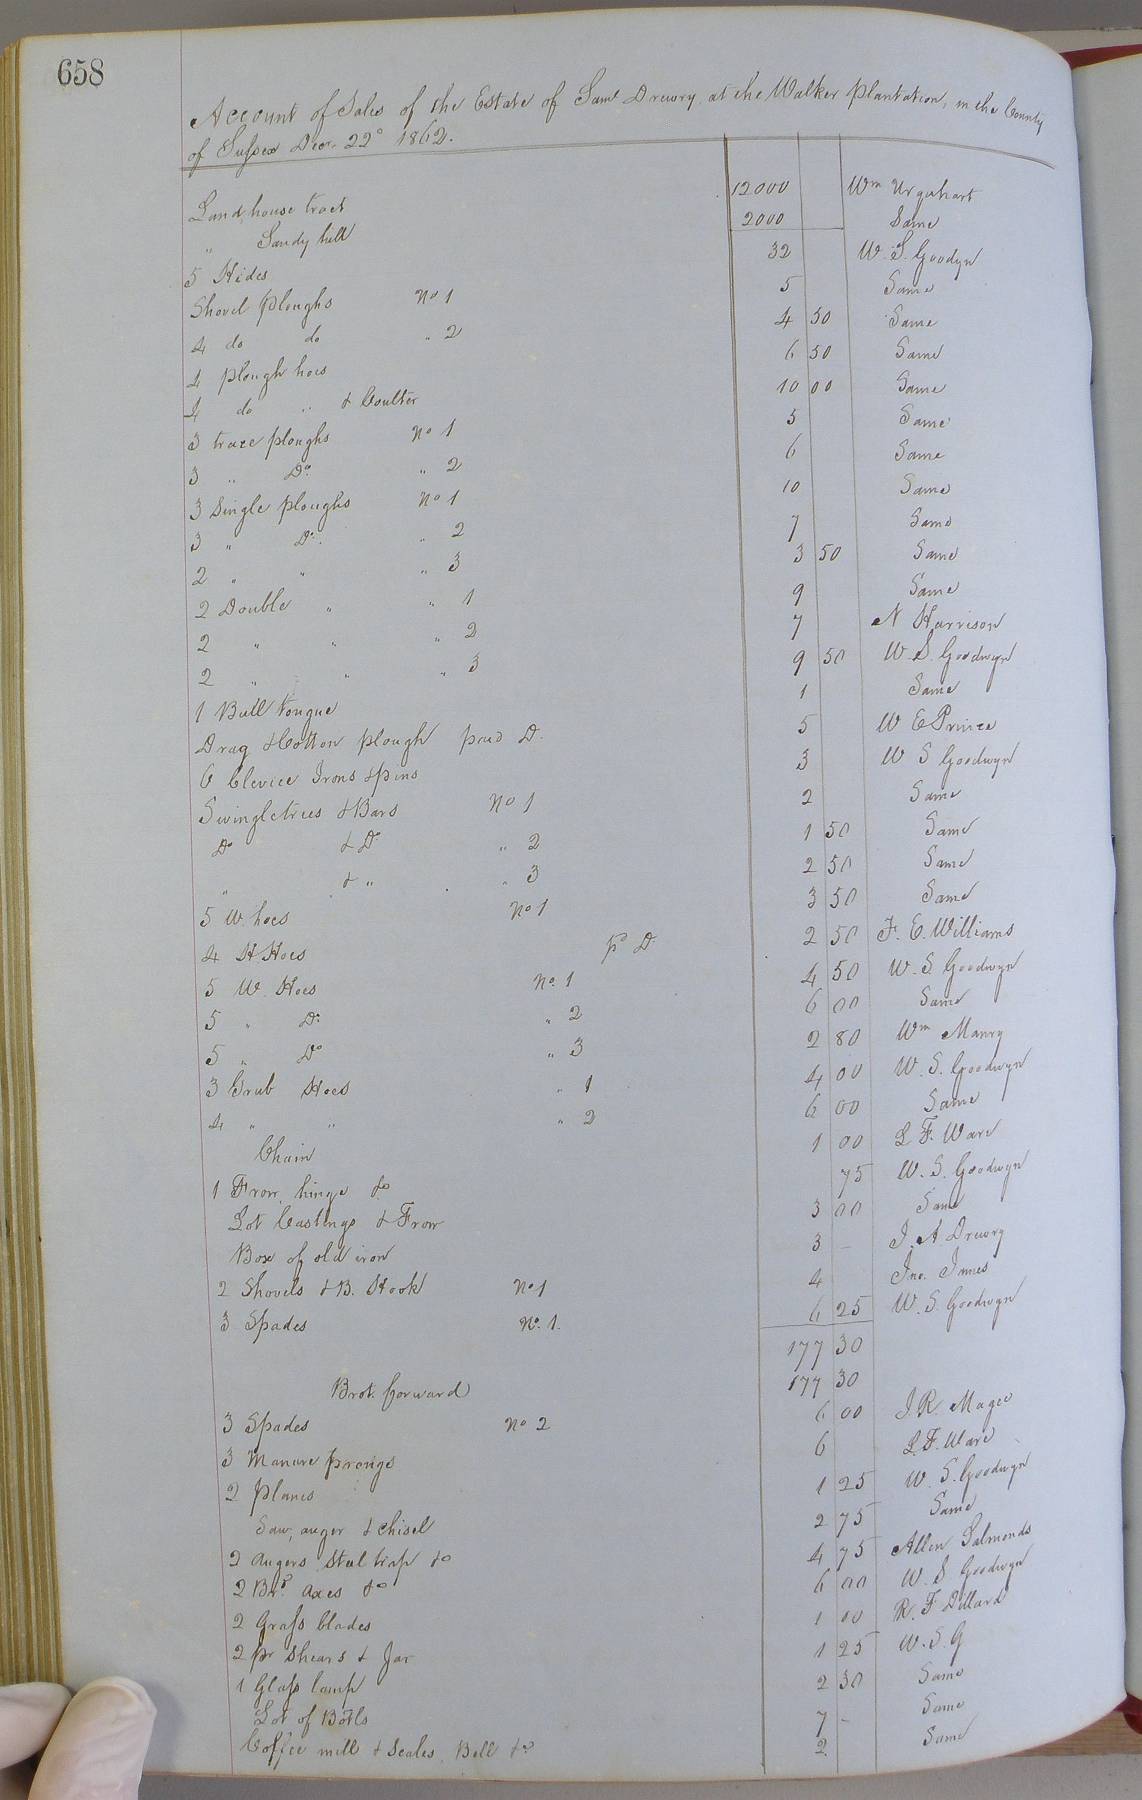 658
Account of Sales of the Estate of Saml Drewry, at the Walker Plantation, in the County
of Sussex Decr. 22d 1862.
Land house tract 12000 Wm Urquhart
" Sandy hill 2000 Same
5 Hides 32 W. S. Goodyn
Shovel ploughs No 1 5 Same
4 do do " 2 4 50 Same
4 plough hoes 6 50 Same
4 do " & Coulter 10 00 Same
3 trace ploughs No 1 5 Same
3 " Do " 2 6 Same
3 Single ploughs No 1 10 Same
3 " Do " 2 7 Same
2 " " " 3 3 50 Same
2 Double " " 1 9 Same
2 " " " 2 7 N Harrison
2 " " " 3 9 50 W. S. Goodwyn
1 Bull tongue 1 Same
Drag & Cotton plough paid D. 5 W E Prince
6 Clevice Irons & pins 3 W S Goodwyn
Swingletrees & Bars No 1 2 Same
Do & Do " 2 1 50 Same
" & " " 3 2 50 Same
5 W. hoes No 1 3 50 Same
4 H Hoes pd D. 2 50 F. E. Williams
5 W. Hoes No. 1 4 50 W. S. Goodwyn
5 " Do " 2 6 00 Same
5 " Do " 3 2 80 Wm Manry
3 Grub Hoes " 1 4 00 W. S. Goodwyn
4 " " " 2 6 00 Same
Chain 1 00 L. F. Ware
1 Frow, hinge &c 75 W. S. Goodwyn
Lot Castings & Frow 3 00 Same
Box of old iron 3 – J. A Drewry
2 Shovels & B. Hook No 1 4 Jno. Innes
3 Spades No. 1. 6 25 W. S. Goodwyn
177 30
Brot. forward 177 30
3 Spades No 2 6 00 J. R. Magee
3 Manure prongs 6 L. F. Ware
2 planes 1 25 W. S. Goodwyn
Saw, auger & chisel 2 75 Same
2 augers steel trap &c 4 75 Allen Salmonds
2 Brd. axes &c 6 00 W. S Goodwyn
2 Grass blades 1 00 R. F Dillard
2 pr Shears & Jar 1 25 W. S. G
1 Glass lamp 2 30 Same
Lot of Bottls 7 – Same
Coffee mill & Scales, Bell &c 2 Same